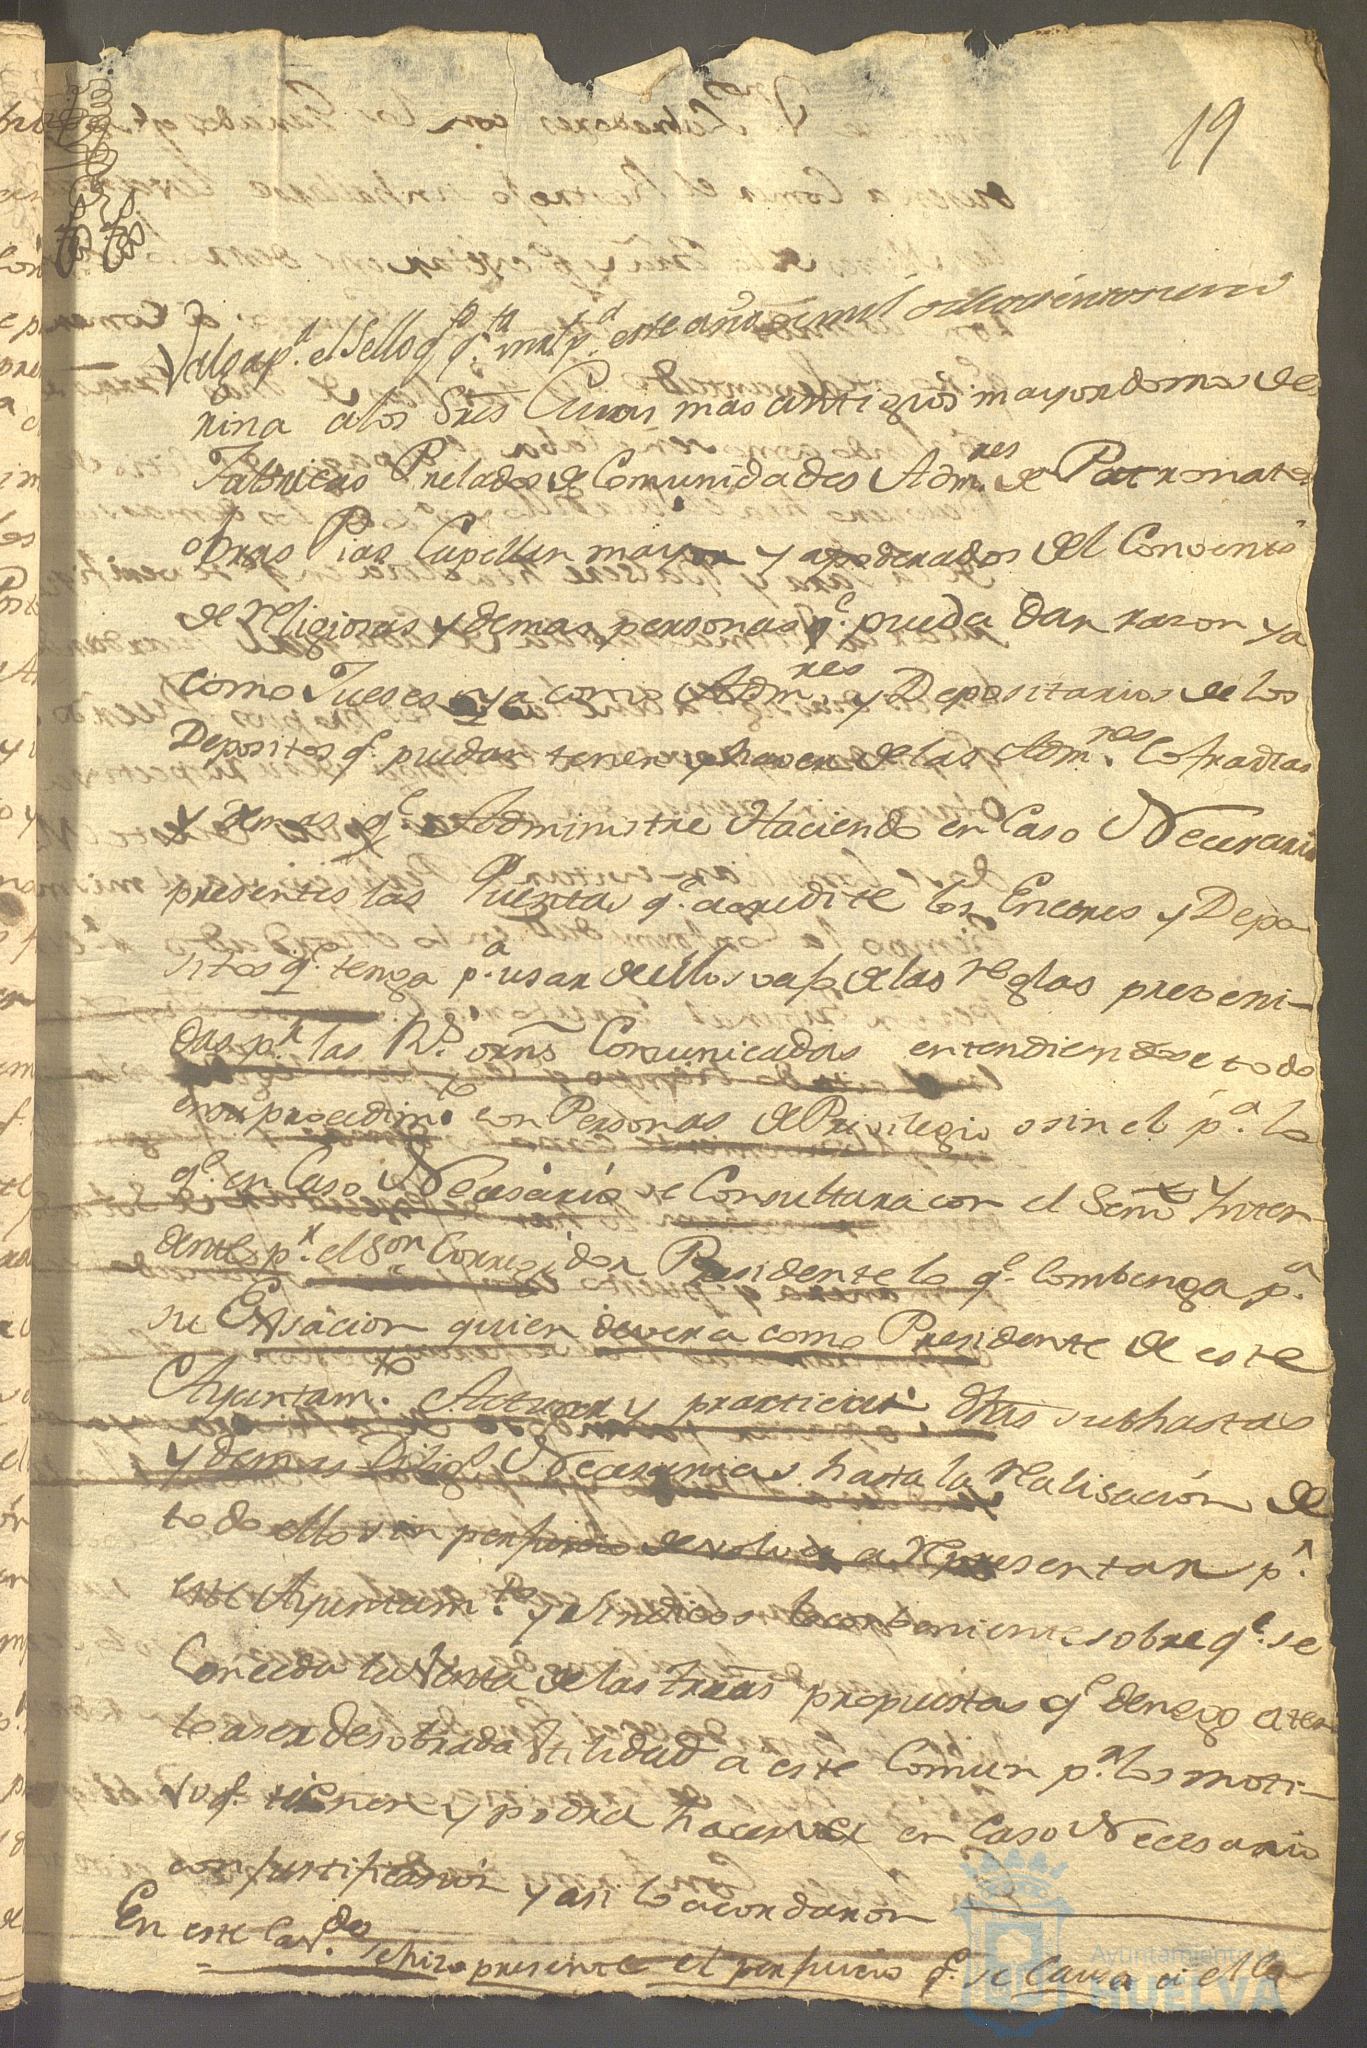 19
Valga pª el Sello qº qᵗᵃ mrs pª este año de mil ochocientos uno
nina a los Sres Curas mas antiguos mayordomos de
Fabricas Prelados de Comunidades Admres de Patronatos
obras Pias Capellan mayor y apoderados del Convento
de religiosas y demas personas qe pueda dar razon ya
como Jueses ya como Admres y Depositarios de los
Depositos qe puedan tener y haver de las Admres Cofradias
y demas qe Administre Haciendo en Caso Necesario
presentes las Quentas qe acredite los Encores y Depo
sitos qe tenga pª usar de ellos vajo de las reglas preveni-
das pr las Rs ornŝ Comunicadas entendiendose todo
en su procedimto con Personas de Privilegio o sin el pª lo
qe en Caso Necesario se Consultara con el Señor Ynten-
dente pr el Sor Corregidor Presidente lo qe Combenga pª
su Evasacion quien devera como Presidente de este
Ayuntamto Actuar y practicar dhas subhastas
y demas Diligs Necesarias hasta la realisacion de
todo ello sin perjuicio de volver a representar pr
este Ayuntamto y Sindicos lo combeniente sobre qe se
Conceda la Venta de las tierras propuestas qe denego aten
to a ser de sobrada Utilidad a este Comun pr los moti-
vos qe tienen y podra hacerse en Caso Necesario
con justificasion y asi lo acordaron
En este Cavdo se hizo presente el perjuicio qe se causa a el
Ayuntamiento de
HUELVA